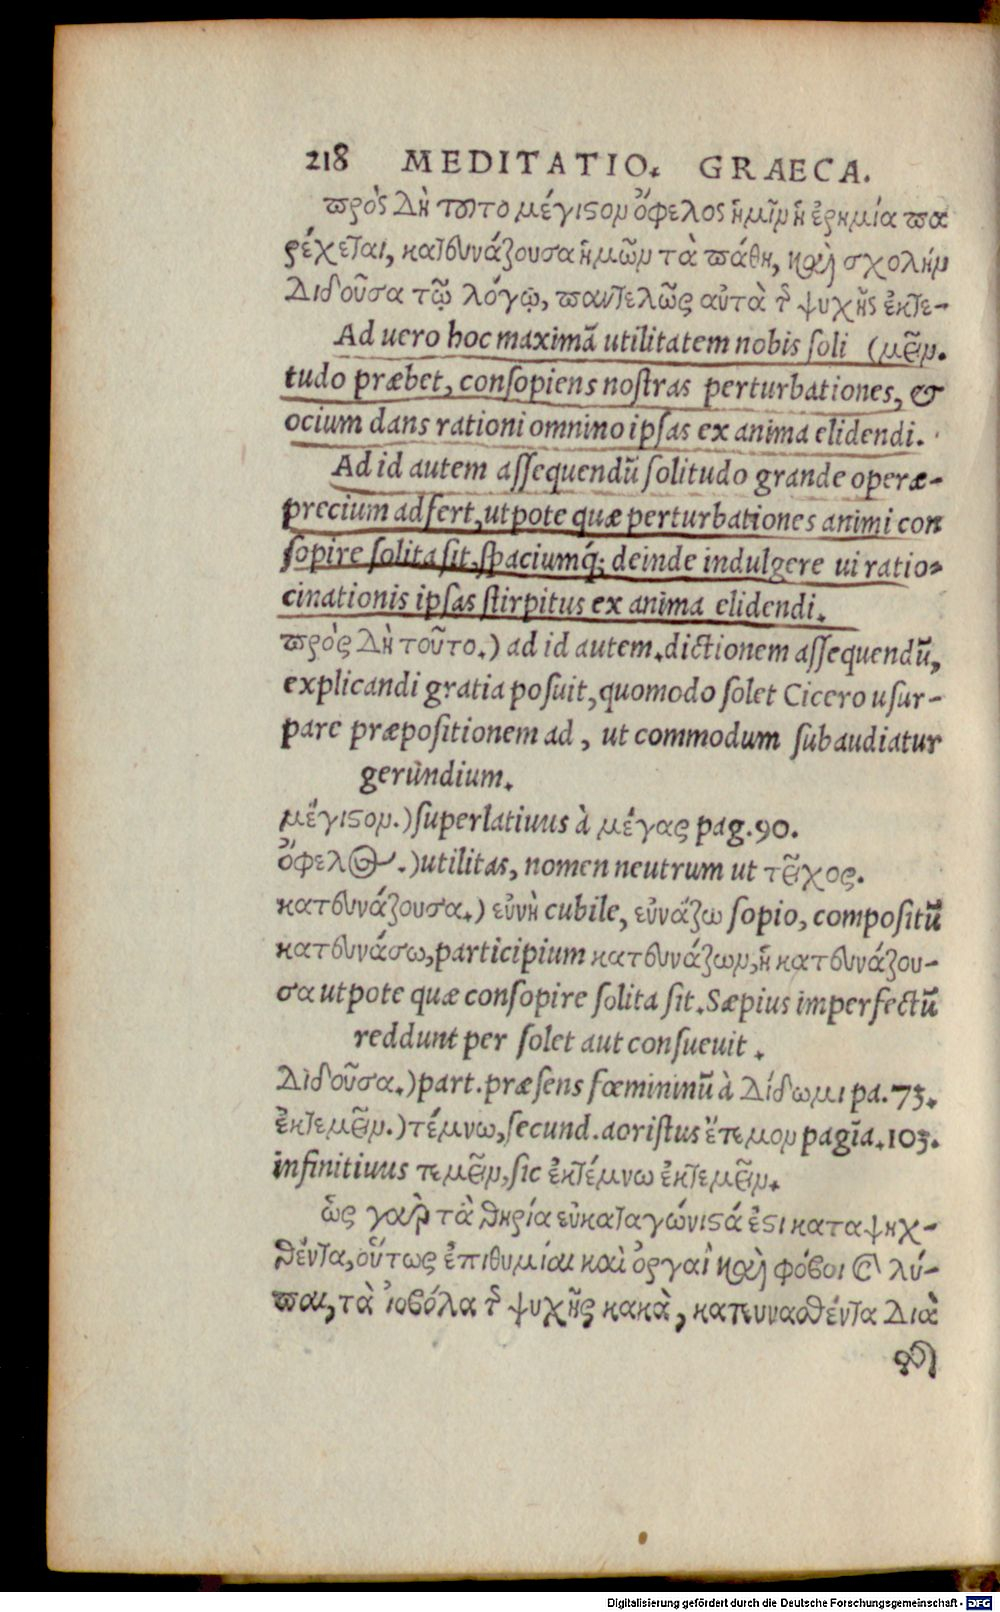 218 MEDITATIO. GRAECA.
πρὸς δὴ τοῦτο μέγιστον ὄφελος ἡμῖν ἡ ἐρημία πα
ρέχεται, κατευνάζουσα ἡμῶν τὰ πάθη, καὶ σχολὴν
διδοῦσα τῷ λόγῳ, παντελῶς αὐτὰ τῆς ψυχῆς ἐκτε-
Ad uero hoc maximā utilitatem nobis soli (μεῖν.
tudo præbet, consopiens nostras perturbationes, &
ocium dans rationi omnino ipsas ex anima elidendi.
Ad id autem assequendū solitudo grande operæ-
precium adfert, utpote quæ perturbationes animi con
sopire solita sit, spaciumq́; deinde indulgere ui ratio-
cinationis ipsas stirpitus ex anima elidendi.
πρὸς δὴ τοῦτο.) ad id autem. dictionem assequendū,
explicandi gratia posuit, quomodo solet Cicero usur-
pare præpositionem ad, ut commodum subaudiatur
gerundium.
μέγιστον.) superlatiuus à μέγας pag. 90.
ὄφελος.) utilitas, nomen neutrum ut τεῖχος.
κατευνάζουσα.) εὐνὴ cubile, εὐνάζω sopio, compositū
κατευνάσω, participium κατευνάζων, ἡ κατευνάζου-
σα utpote quæ consopire solita sit. Sæpius imperfectū
reddunt per solet aut consueuit.
διδοῦσα.) part. præsens fœmininū à δίδωμι pa. 73.
ἐκτεμεῖν.) τέμνω, secund. aoristus ἔτεμον pagīa. 103.
infinitiuus τεμεῖν, sic ἐκτέμνω ἐκτεμεῖν.
ὡς γαρ τὰ θηρία εὐκαταγώνιστά ἐστι καταψηχ-
θέντα, οὕτως ἐπιθυμίαι καὶ ὀργαὶ καὶ φόβοι καὶ λύ-
παι, τὰ ἰοβόλα τῆς ψυχῆς κακὰ, κατευνασθέντα διὰ
τῆς
Digitalisierung gefördert durch die Deutsche Forschungsgemeinschaft - DFG